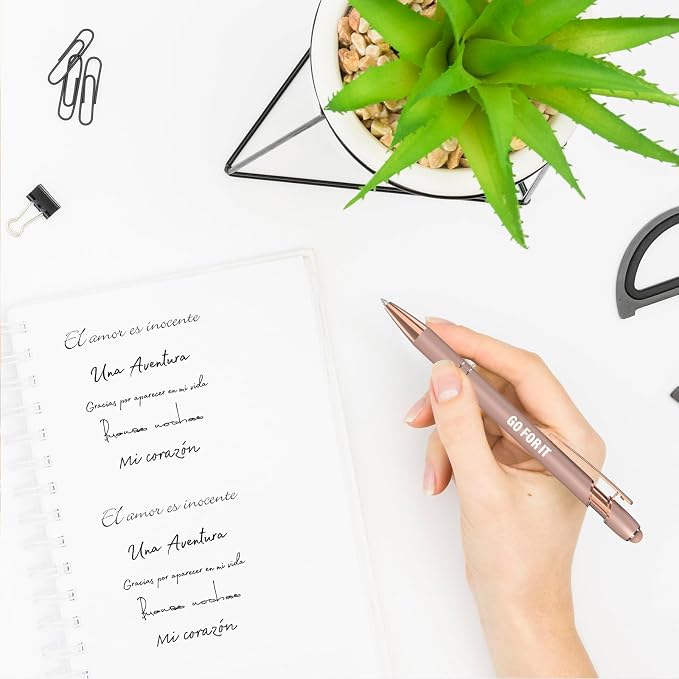 El amor es inocente
Una Aventura
Gracias por aparecer en mi vida
Buenas noches
Mi corazón
El amor es inocente
Una Aventura
Gracias por aparecer en mi vida
Buenas noches
Mi corazón
GO FOR IT